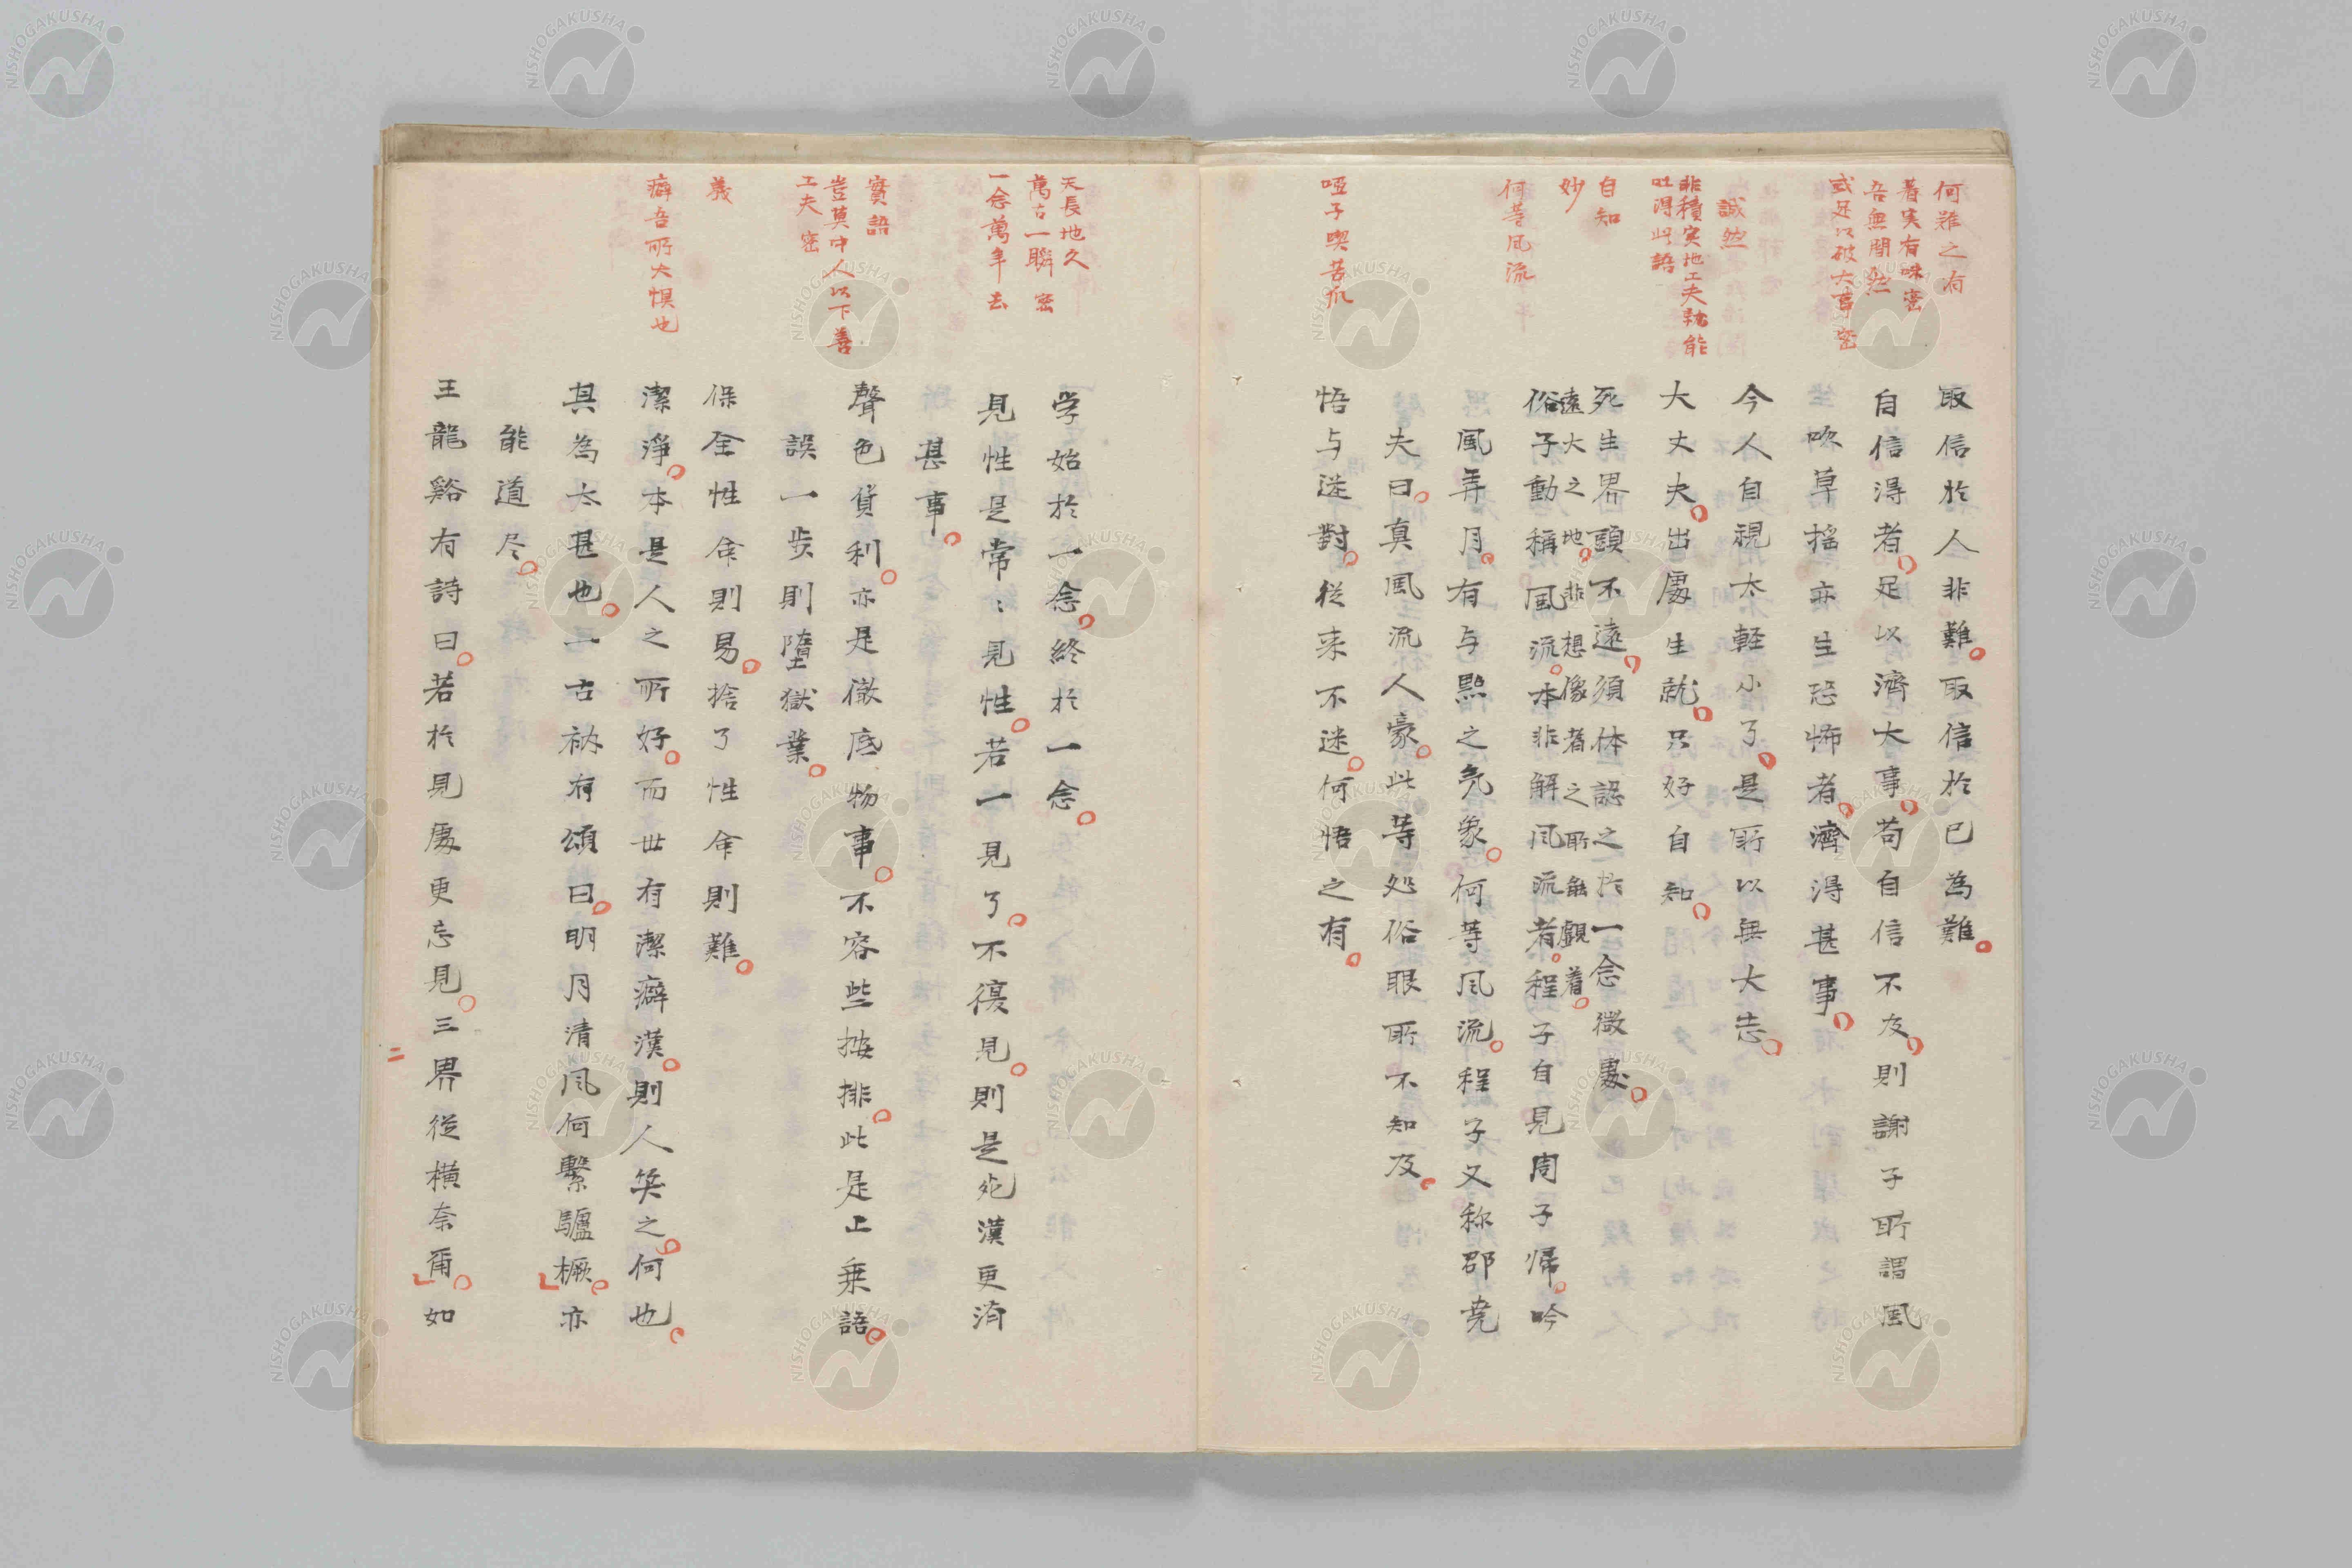 何難之有
着実有味密
吾無間然
或足以破大事密
誠然
非積実地工夫孰能
吐得此語
自知
妙
何等風流
啞子喫苦瓜
取信於人非難。取信於已為難。
自信得者。足以濟大事。苟自信不及。則謝子所謂風
吹草搖亦生恐怖者。濟得甚事。
今人自視太軽小了。是所以無大志。
大丈夫。出處生就。只好自知。
死生界回頭不遠。須体認之於一念微處。
遠大之地。非想像者之所能觀着。
俗子動稱風流。本非解風流者。程子自見周子帰。吟
風弄月。有与點之気象。何等風流。程子又称邵堯
夫曰。真風流人豪。此等処俗眼所不知及。
悟与迷對。従来不迷。何悟之有。
天長地久
萬古一瞬 密
一念萬年去
實語
豈莫中人以下善
工夫 密
義
癖吾所大惧也
学始於一念。終於一念。
見性是常〻見性。若一見了。不復見。則是死漢更済
甚事。
聲色貨利。亦是徹底物事。不容些按排。此是上乗語。
誤一步則墮獄業。
保全性命則易。捨了性命則難。
潔淨。本是人之所好。而世有潔癖漢。則人笑之。何也。
其為太甚也。一古衲有頌曰。明月清風何繫驢橛。」亦
能道尽。
王龍谿有詩曰。若於見處更忘見。三界從横奈爾。」如
二
NISHOGAKUSHA